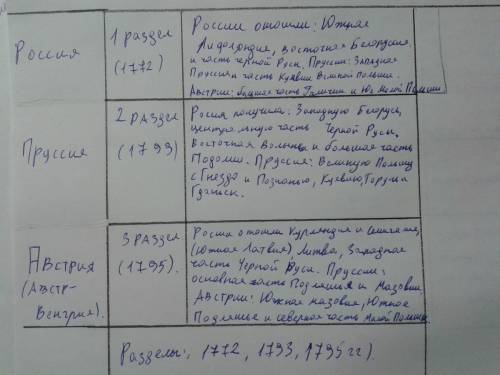 Россия
1 раздел
(1772)
России отошли: Южная
Лифляндия, восточная Белорусия
и часть черной Руси. Пруссии: Западная
Пруссия и часть Куявии Великой Польши.
Австрии: большая часть Галиции и Юг Малой Польши
Пруссия
2 раздел
(1793)
Россия получила: Западную Белорус,
центральную часть Черной Руси,
Восточная Волынь и большая часть
Подолии. Пруссия: Великую Польшу
с Гнездо и Познанью, Куявию, Торунь и
Гданьск.
Австрия
(Австр-
Венгрия).
3 раздел
(1795).
России отошли Курляндия и
(Южная Латвия), Литва, Западная
часть Черной Руси. Пруссии:
основная часть Подляшья и Мазовии.
Австрии: Южная мазовия, Южное
Подляшье и северная часть Малой Польши.
Разделы: 1772, 1793, 1795 гг).